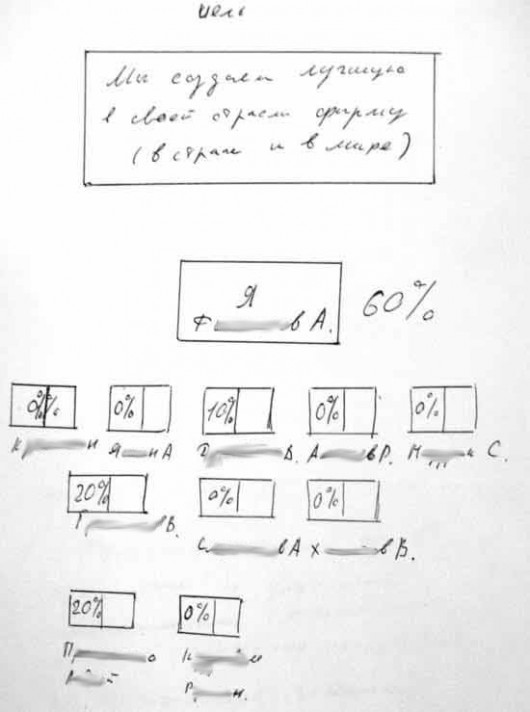 Цель
Мы создаем лучшую
в своей отрасли фирму
(в стране и в мире)
Я
Ф в А.
60%
0% 0% 10% 0% 0%
К н Я н А В. А в Р. С.
20% 0% 0%
Г В. С в А Х в В.
20% 0%
П о К
й Р н.